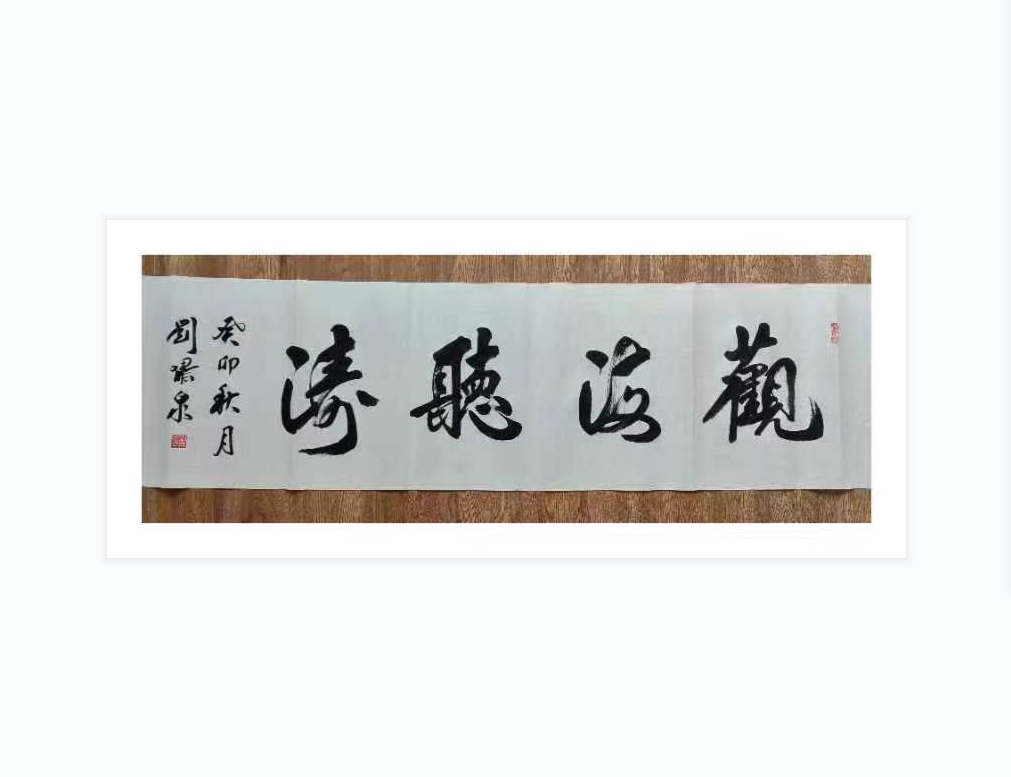 觀海聽濤
癸卯秋月
劉
泉